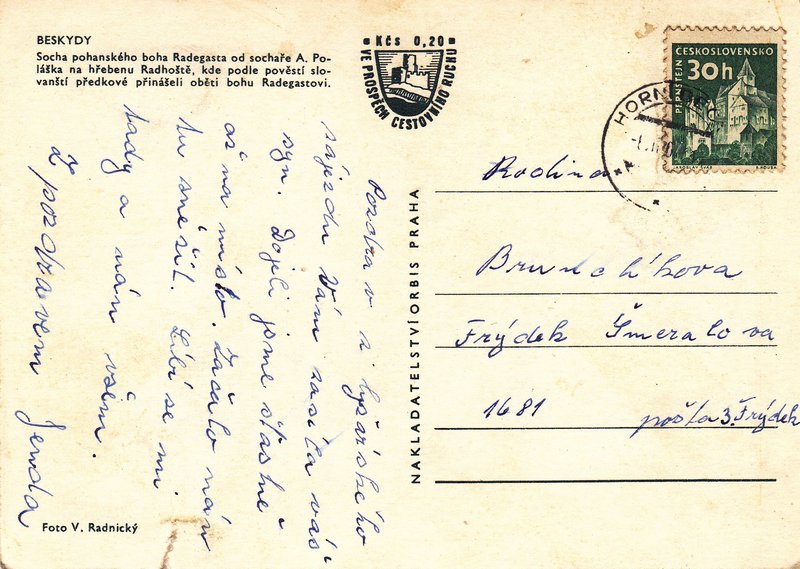 BESKYDY
Socha pohanského boha Radegasta od sochaře A. Po-
láška na hřebenu Radhoště, kde podle pověstí slo-
vanští předkové přinášeli oběti bohu Radegastovi.
Kčs 0,20
VE PROSPĚCH CESTOVNÍHO RUCHU
ČESKOSLOVENSKO
30h
PERNŠTEJN
JAROSLAV ŠVÁB
HORNÍ
Pozdrav z lyžařského
zájezdu Vám zasílá váš
syn. Dojeli jsme šťastně
až na místo. Začalo nám
tu sněžit. Líbí se mi
tady a nám všem.
Z pozdravem Jenda
NAKLADATELSTVÍ ORBIS PRAHA
Rodina
Frýdek Šmeralova
1681
pošta 3. Frýdek
Foto V. Radnický